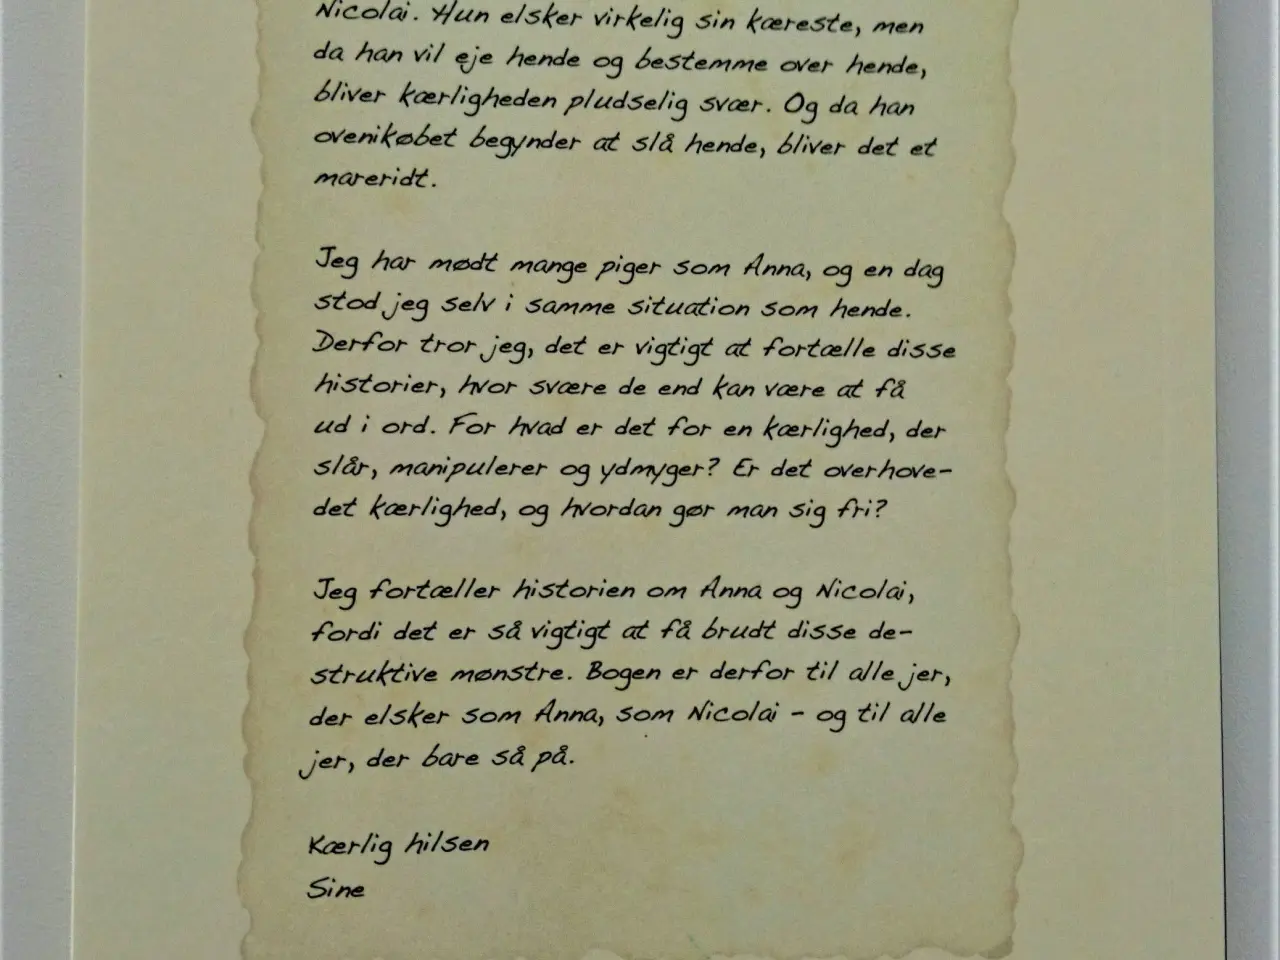 Nicolai. Hun elsker virkelig sin kæreste, men
da han vil eje hende og bestemme over hende,
bliver kærligheden pludselig svær. Og da han
ovenikøbet begynder at slå hende, bliver det et
mareridt.
Jeg har mødt mange piger som Anna, og en dag
stod jeg selv i samme situation som hende.
Derfor tror jeg, det er vigtigt at fortælle disse
historier, hvor svære de end kan være at få
ud i ord. For hvad er det for en kærlighed, der
slår, manipulerer og ydmyger? Er det overhove-
det kærlighed, og hvordan gør man sig fri?
Jeg fortæller historien om Anna og Nicolai,
fordi det er så vigtigt at få brudt disse de-
struktive mønstre. Bogen er derfor til alle jer,
der elsker som Anna, som Nicolai - og til alle
jer, der bare så på.
Kærlig hilsen
Sine